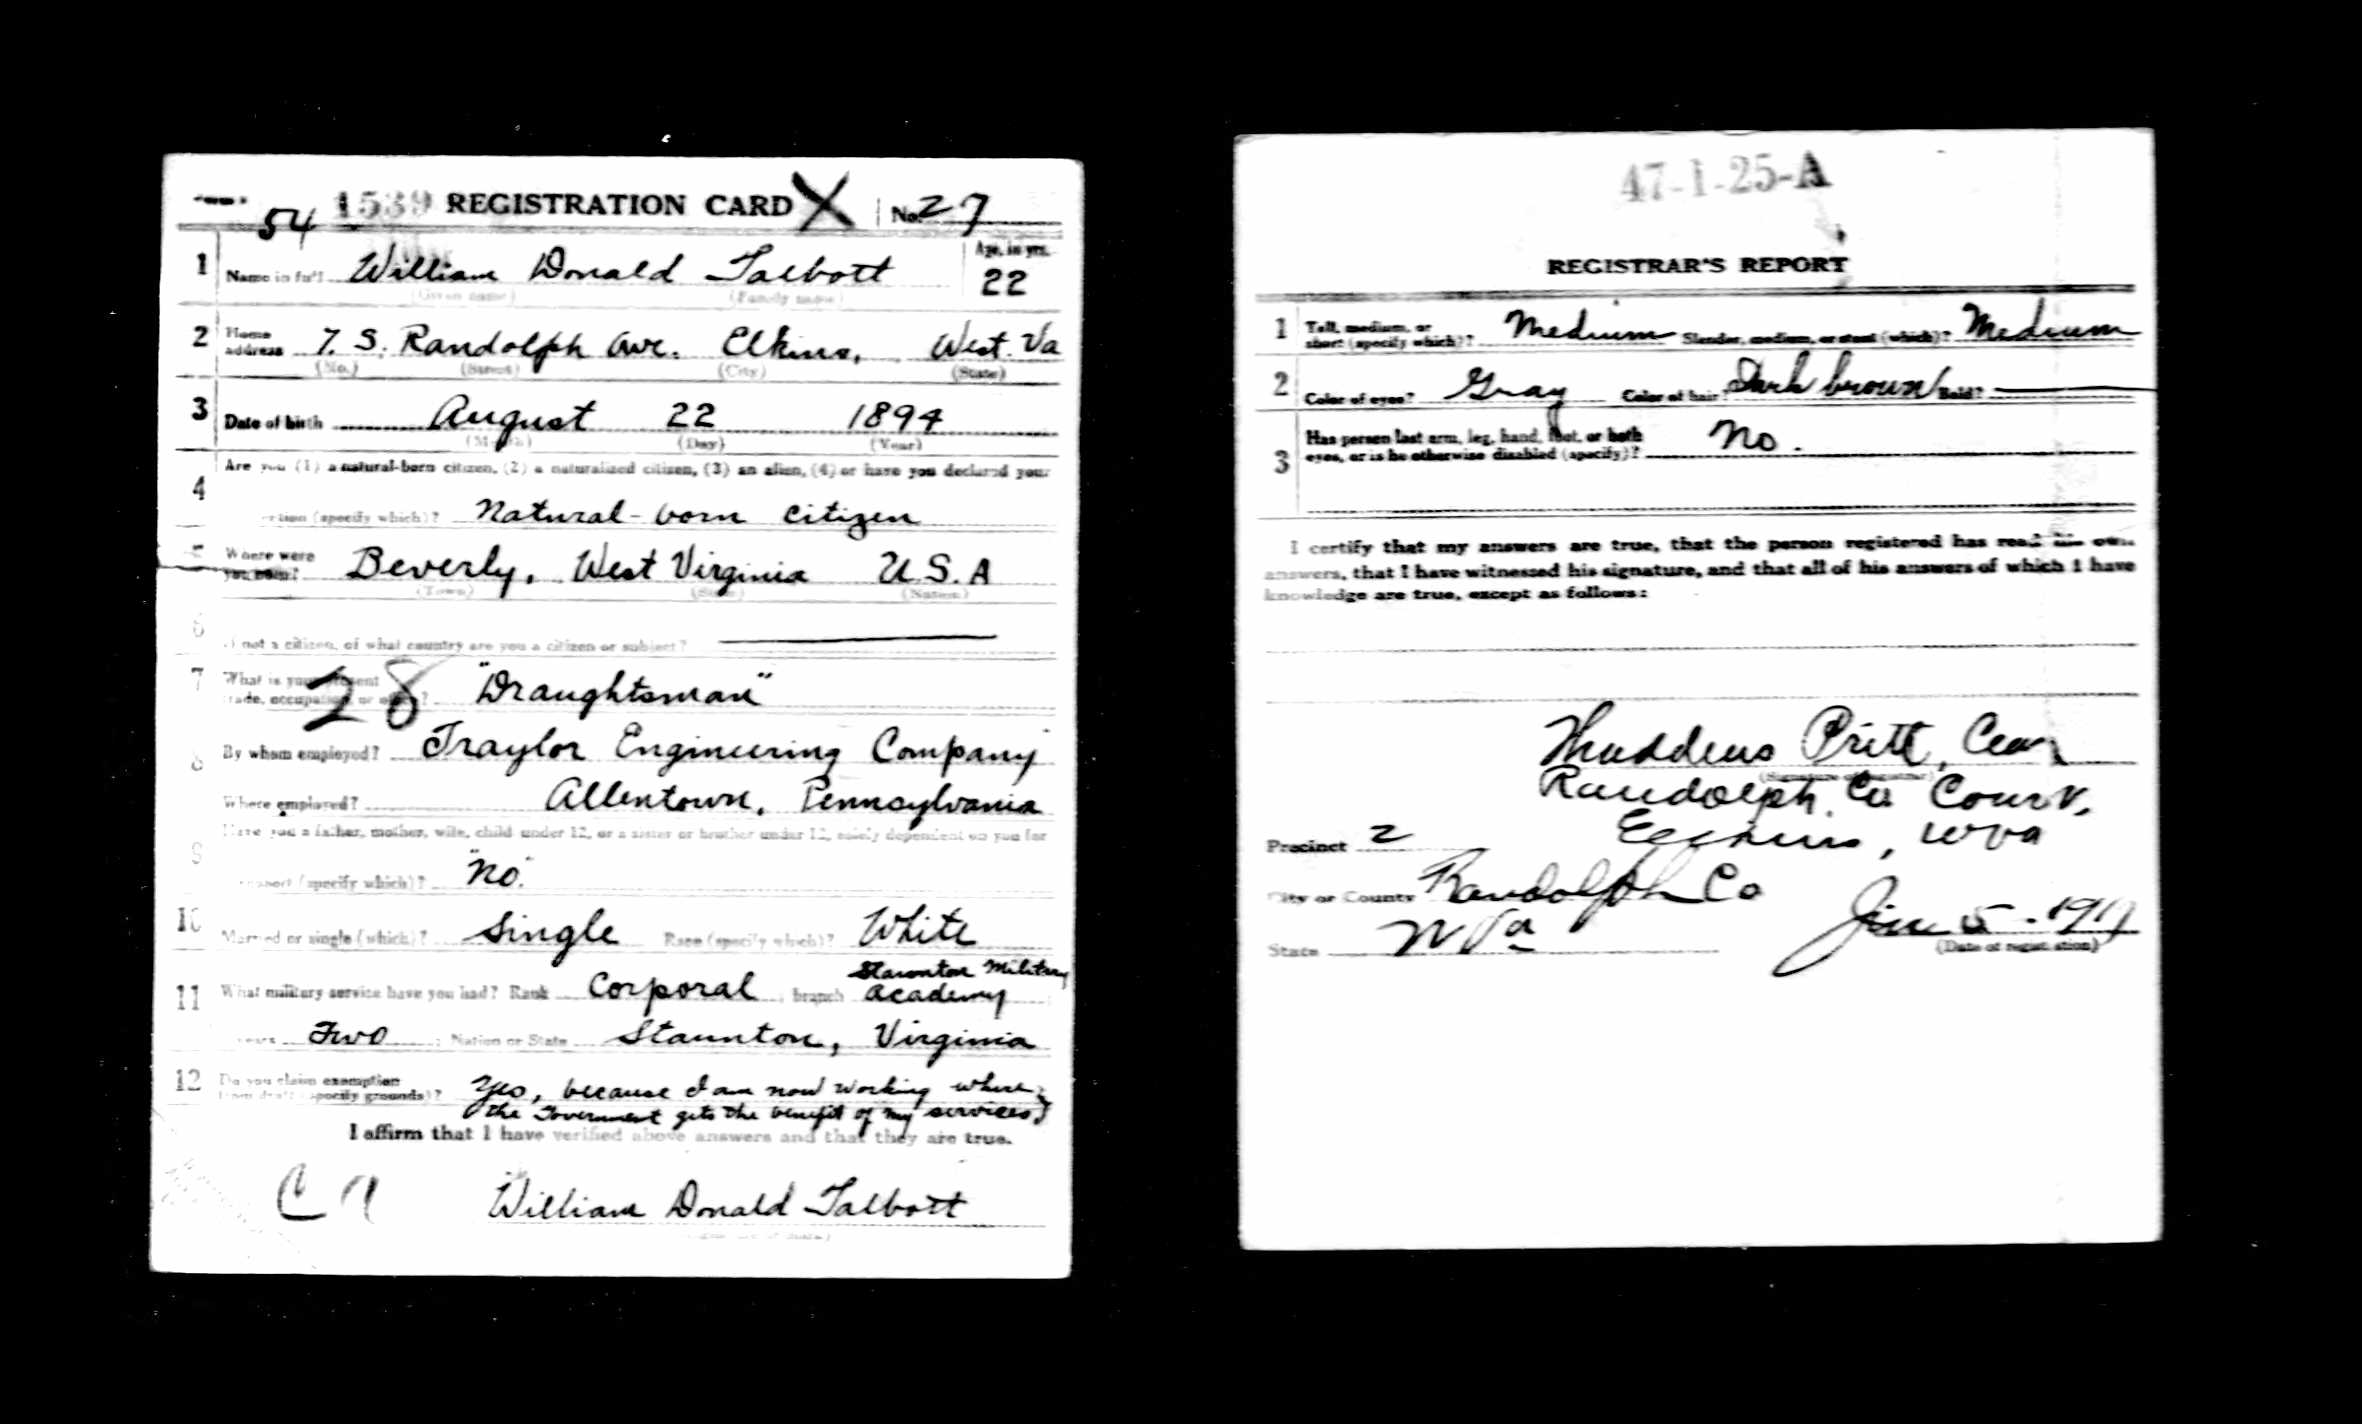 54 1539 REGISTRATION CARD X No. 27
1 Name in full William Donald Talbott Age, in yrs. 22
(Given name) (Family name)
2 Home address 7. S. Randolph Ave. Elkins, West. Va
(No.) (Street) (City) (State)
3 Date of birth August 22 1894
(Month) (Day) (Year)
4 Are you (1) a natural-born citizen, (2) a naturalized citizen, (3) an alien, (4) or have you declared your
(specify which)? Natural-born citizen
5 Where were you born? Beverly, West Virginia U.S.A
(Town) (State) (Nation)
6 If not a citizen, of what country are you a citizen or subject?
7 What is your present trade, occupation, or office? "Draughtsman"
28
8 By whom employed? Traylor Engineering Company
Where employed? Allentown, Pennsylvania
9 Have you a father, mother, wife, child under 12, or a sister or brother under 12, solely dependent on you for
support (specify which)? "No."
10 Married or single (which)? Single Race (specify which)? White
11 What military service have you had? Rank Corporal branch Staunton Military Academy
years Two ; Nation or State Staunton, Virginia
12 Do you claim exemption from draft (specify grounds)? Yes, because I am now working where
the Government gets the benefit of my services,
I affirm that I have verified above answers and that they are true.
William Donald Talbott
47-1-25-A
REGISTRAR'S REPORT
1 Tall, medium, or short (specify which)? Medium Slender, medium, or stout (which)? Medium
2 Color of eyes? Gray Color of hair? Dark brown Bald?
3 Has person lost arm, leg, hand, foot, or both
eyes, or is he otherwise disabled (specify)? No.
I certify that my answers are true, that the person registered has read his own
answers, that I have witnessed his signature, and that all of his answers of which I have
knowledge are true, except as follows:
Thaddeus Pritt,
(Signature of registrar)
Randolph Co Court,
Precinct 2 Elkins, W Va
City or County Randolph Co
State W Va June 5 - 1917
(Date of registration)